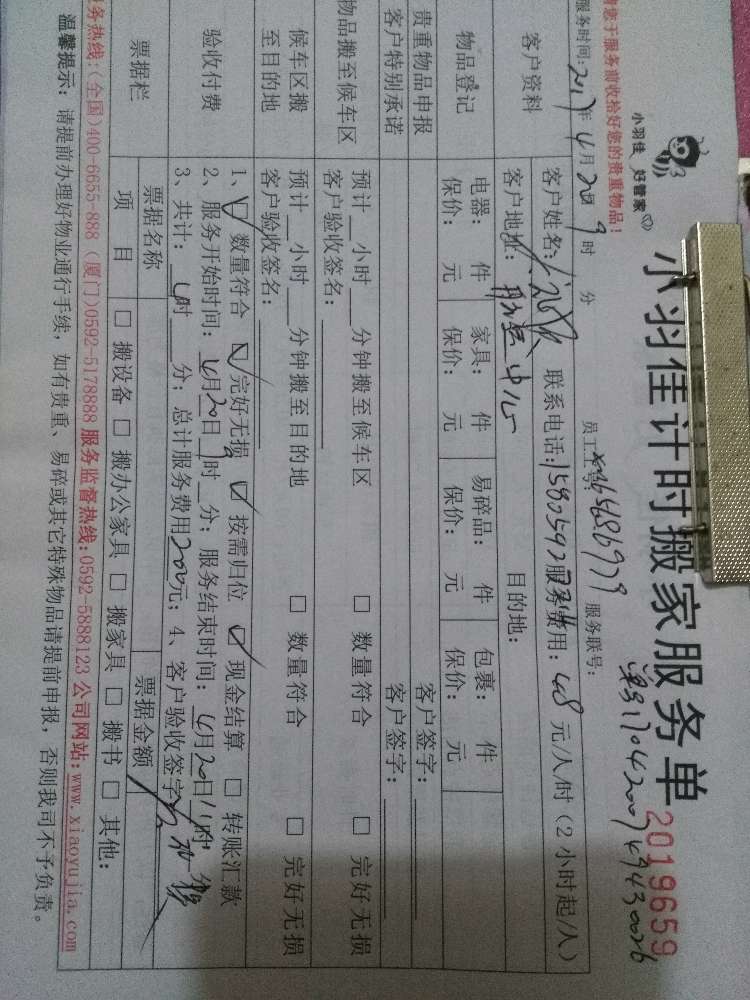 小羽佳 好管家
小羽佳计时搬家服务单
2019659
请您于服务前收拾好您的贵重物品!
服务时间: 2017年4月20日9时 分 员工工号: 服务联号:
客户资料
客户姓名: 联系电话: 服务费用: 48 元/人/时 (2小时起/人)
客户地址: 目的地:
物品登记
电器: 件 家具: 件 易碎品: 件 包裹: 件
保价: 元 保价: 元 保价: 元 保价: 元
贵重物品申报 客户签字:
客户特别承诺 客户签字:
物品搬至候车区
预计__小时__分钟搬至候车区 □ 数量符合 □ 完好无损
客户验收签名:
候车区搬至目的地
预计__小时__分钟搬至目的地 □ 数量符合 □ 完好无损
客户验收签名:
验收付费
1、☑ 数量符合 ☑ 完好无损 ☑ 按需归位 ☑ 现金结算 □ 转账汇款
2、服务开始时间: 4月20日9时__分; 服务结束时间: 4月20日11时__分
3、共计: 4时__分; 总计服务费用200元; 4、客户验收签字
票据栏
票据名称 票据金额
项 目 □ 搬设备 □ 搬办公家具 □ 搬家具 □ 搬书 □ 其他:
务热线:(全国)400-6655-888 (厦门)0592-5178888 服务监督热线:0592-5888123 公司网站:www.xiaoyujia.com
温馨提示: 请提前办理好物业通行手续, 如有贵重、易碎或其它特殊物品请提前申报, 否则我司不予负责。